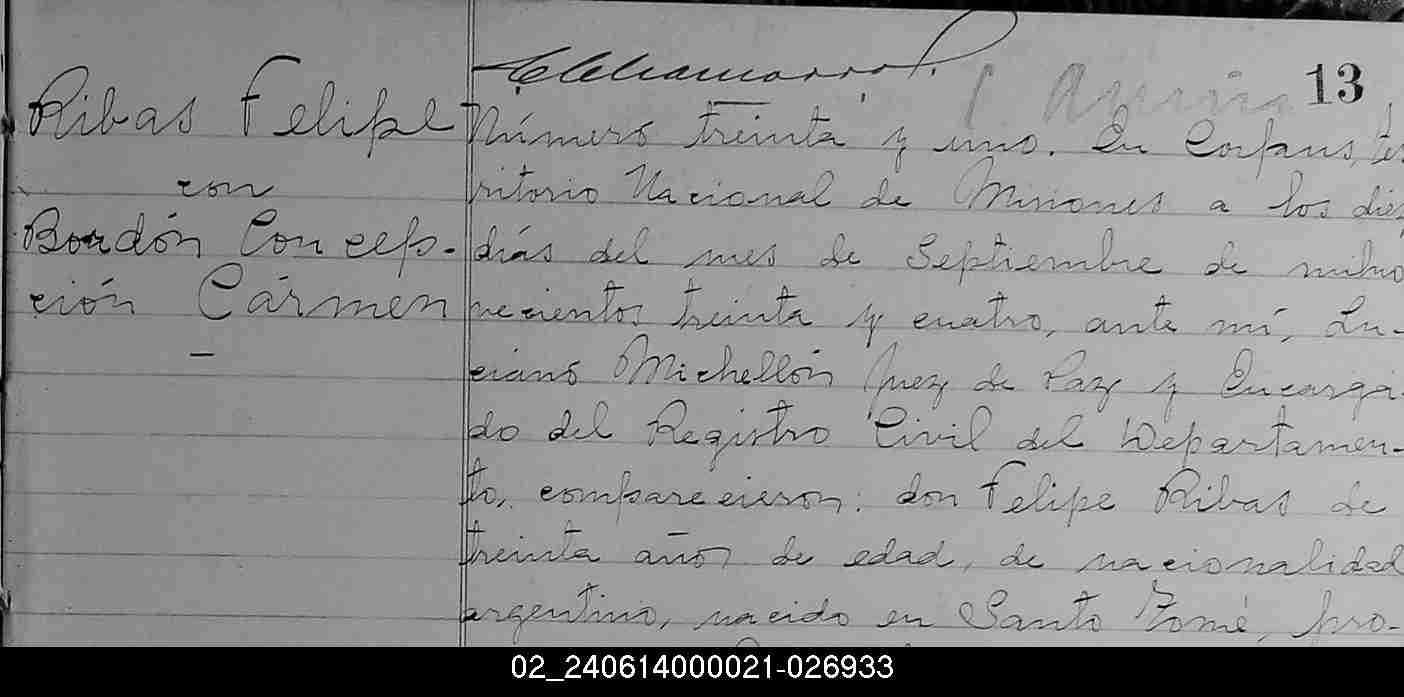 13
Ribas Felipe
con
Bordón Concep-
ción Cármen
Número treinta y uno. En Corpus, te
rritorio Nacional de Misiones a los diez
días del mes de Septiembre de milno
vecientos treinta y cuatro, ante mí, Lu-
ciano Michellón Juez de Paz y Encarga-
do del Registro Civil del Departamen-
to, comparecieron: don Felipe Ribas de
treinta años de edad, de nacionalidad
argentino, nacido en Santo Tomé, pro-
02_240614000021-026933